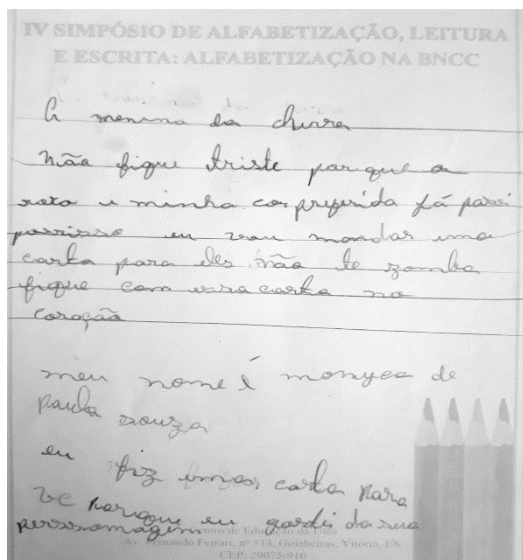 IV SIMPÓSIO DE ALFABETIZAÇÃO, LEITURA
E ESCRITA: ALFABETIZAÇÃO NA BNCC
A menina da chuva
não fique triste porque a
roxo e minha cor preferida já
porrisso eu vou mandar uma
carta para eles não te zomba
fique com essa carta no
coração
meu nome é monyca de
Paula souza
eu fiz uma carta para
vc porque eu gostei da sua
personomagem
Centro de Educação da Ufes
Av. Fernando Ferrari, nº 514, Goiabeiras, Vitória, ES.
CEP: 29075-910